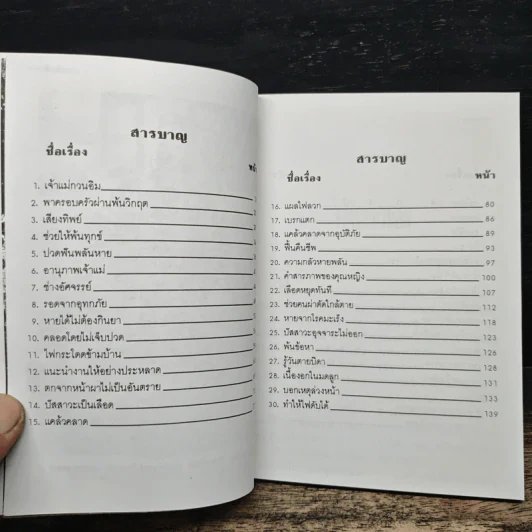 สารบาญ
ชื่อเรื่อง
1. เจ้าแม่กวนอิม
2. พาครอบครัวผ่านพ้นวิกฤต
3. เสียงทิพย์
4. ช่วยให้พ้นทุกข์
5. ปวดฟันพลันหาย
6. อานุภาพเจ้าแม่
7. ช่างอัศจรรย์
8. รอดจากอุทกภัย
9. หายได้ไม่ต้องกินยา
10. คลอดโดยไม่เจ็บปวด
11. ไฟกระโดดข้ามบ้าน
12. แนะนำงานให้อย่างประหลาด
13. ตกจากหน้าผาไม่เป็นอันตราย
14. ปัสสาวะเป็นเลือด
15. แคล้วคลาด
สารบาญ
ชื่อเรื่อง หน้า
16. แผลไฟลวก 80
17. เบรกแตก 86
18. แคล้วคลาดจากอุบัติภัย 89
19. ฟื้นคืนชีพ 93
20. ความกลัวหายพลัน 97
21. คำสารภาพของคุณหญิง 100
22. เลือดหยุดทันที 107
23. ช่วยคนผ่าตัดใกล้ตาย 112
24. หายจากโรคมะเร็ง 118
25. ปัสสาวะอุจจาระไม่ออก 123
26. พ้นข้อหา 126
27. รู้วันตายบิดา 128
28. เนื้องอกในมดลูก 131
29. บอกเหตุล่วงหน้า 133
30. ทำให้ไฟดับได้ 139